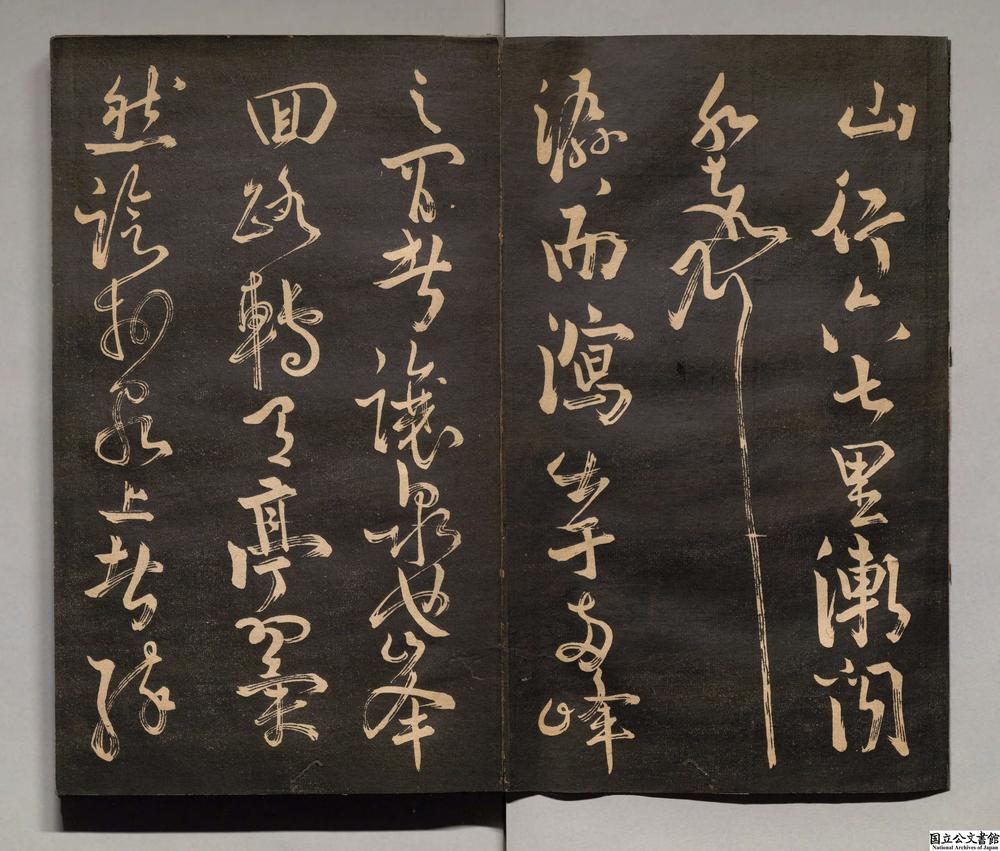 山行六七里漸聞
水聲
潺〻而瀉出于兩峰
之間者讓泉也峯
回路轉有亭翼
然臨於泉上者醉
国立公文書館
National Archives of Japan